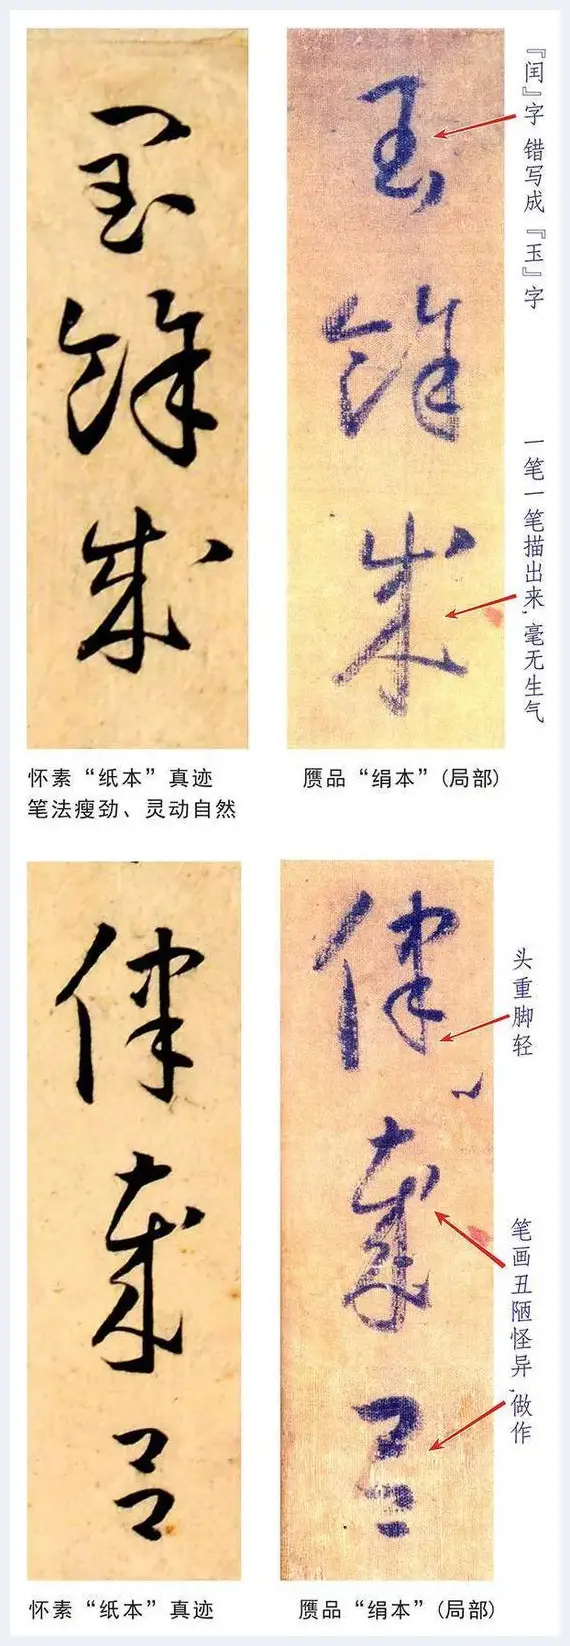 闰
馀
成
『闰』字 错写成 『玉』字
一笔一笔描出来,毫无生气
怀素“纸本”真迹
笔法瘦劲、灵动自然
赝品“绢本”(局部)
律
岁
吕
头重脚轻
笔画丑陋怪异,做作
怀素“纸本”真迹
赝品“绢本”(局部)